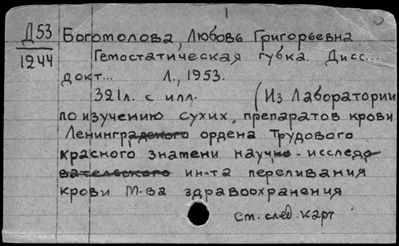 1
Д53 Богомолова, Любовь Григорьевна
1244 Гемостатическая губка. Дисс...
докт... Л., 1953.
321л. с илл. (Из Лаборатории
по изучению сухих препаратов крови
Ленинградского ордена Трудового
красного знамени научно-исследо
вательского ин-та переливания
крови М-ва здравоохранения
см. след. карт